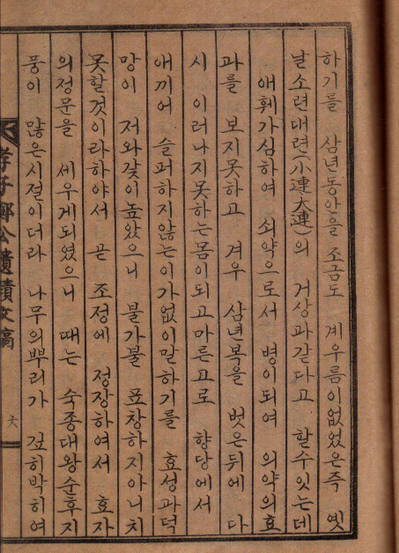 하기를 삼년동안을 조금도 계우름이없었은즉 옛
날소련대련(小連大連)의 거상과같다고 할수잇는데
애훼가심하여 쇠약으로서 병이되여 의약의효
과를 보지못하고 겨우 삼년복을 벗은뒤에 다
시 이러나지못하는몸이되고마른고로 향당에서
애끼어 슬퍼하지않는이가없이말하기를 효성과덕
망이 저와같이높았으니 불가불 표창하지아니치
못할것이라하야서 곧 조정에 정장하여서 효자
의정문을 세우게되였으니 때는 숙종대왕순후지
풍이 많은시절이더라 나무의뿌리가 깊히박히여
孝子鄭公遺蹟文稿
六